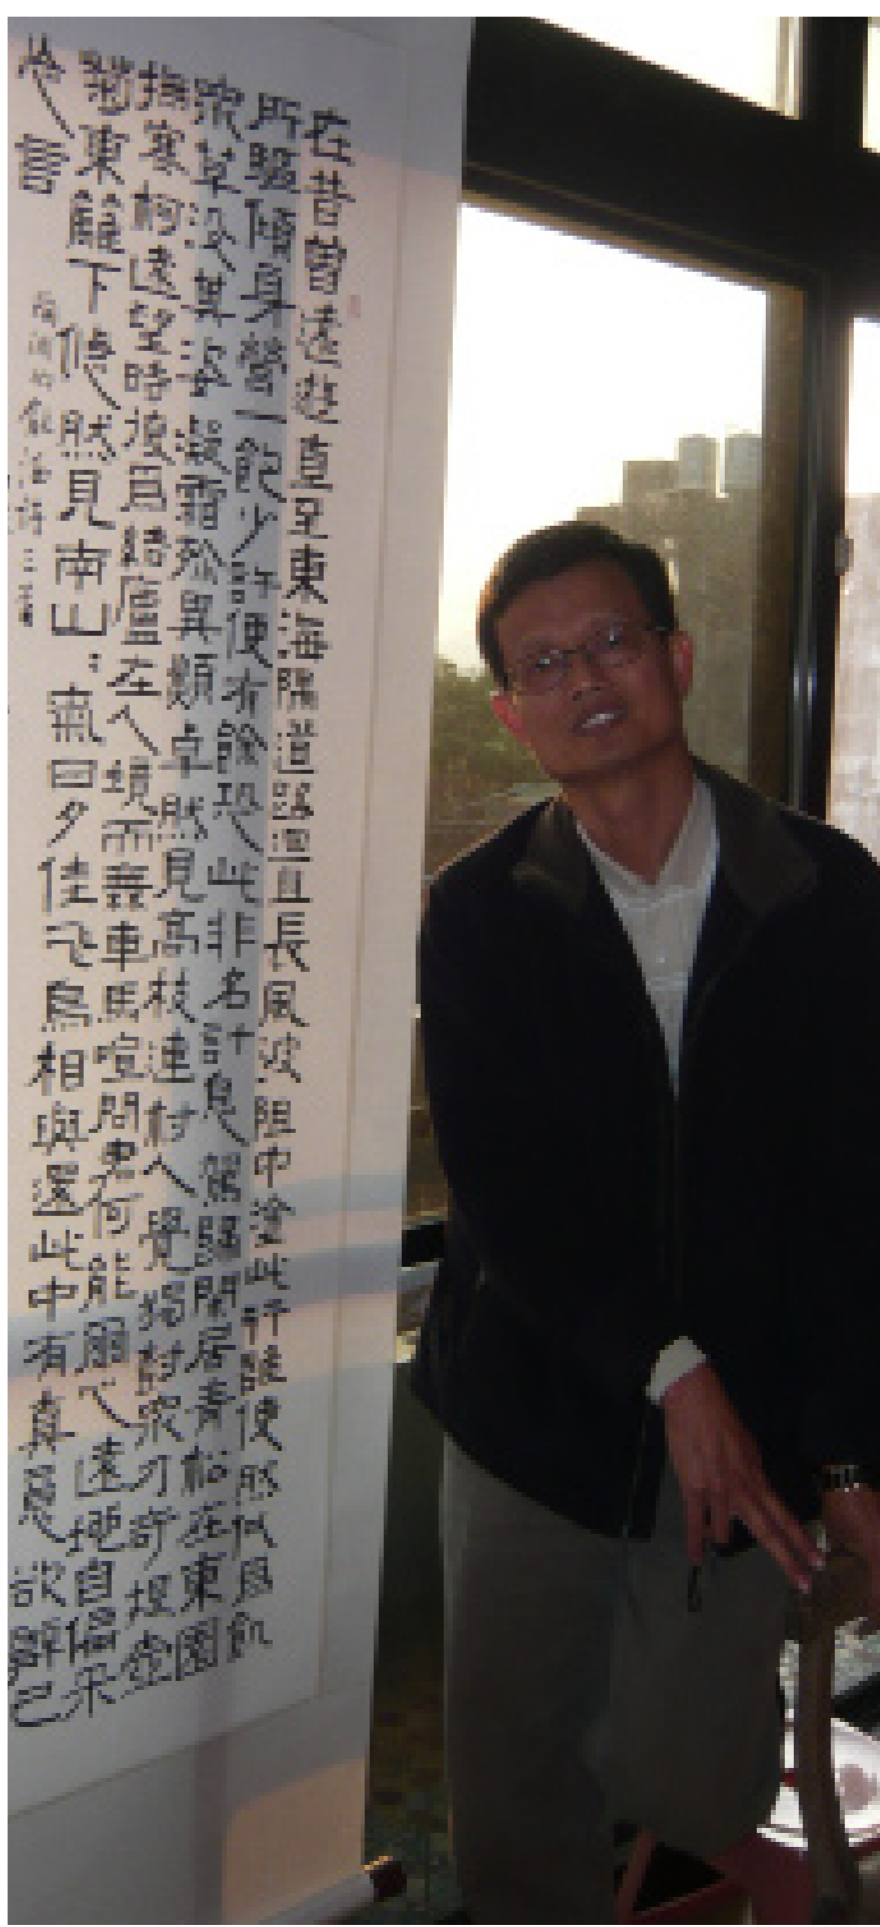 在昔曾遠遊直至東海隅道路迴且長風波阻中塗此行誰使然似為飢
所驅傾身營一飽少許便有餘恐此非名計息駕歸閑居青松在東園
衆草沒其姿凝霜殄異類卓然見高枝連林人覺獨樹衆乃奇提壺
撫寒柯遠望時復為結廬在人境而無車馬喧問君何能爾心遠地自偏采
菊東籬下悠然見南山〻氣日夕佳飛鳥相與還此中有真意欲辯已
忘言